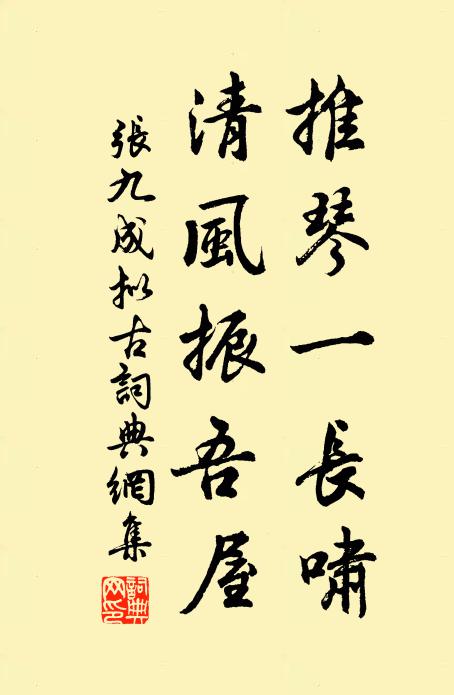 推琴一長嘯
清風振吾屋
張九成拟古詞典網集
詞典网印